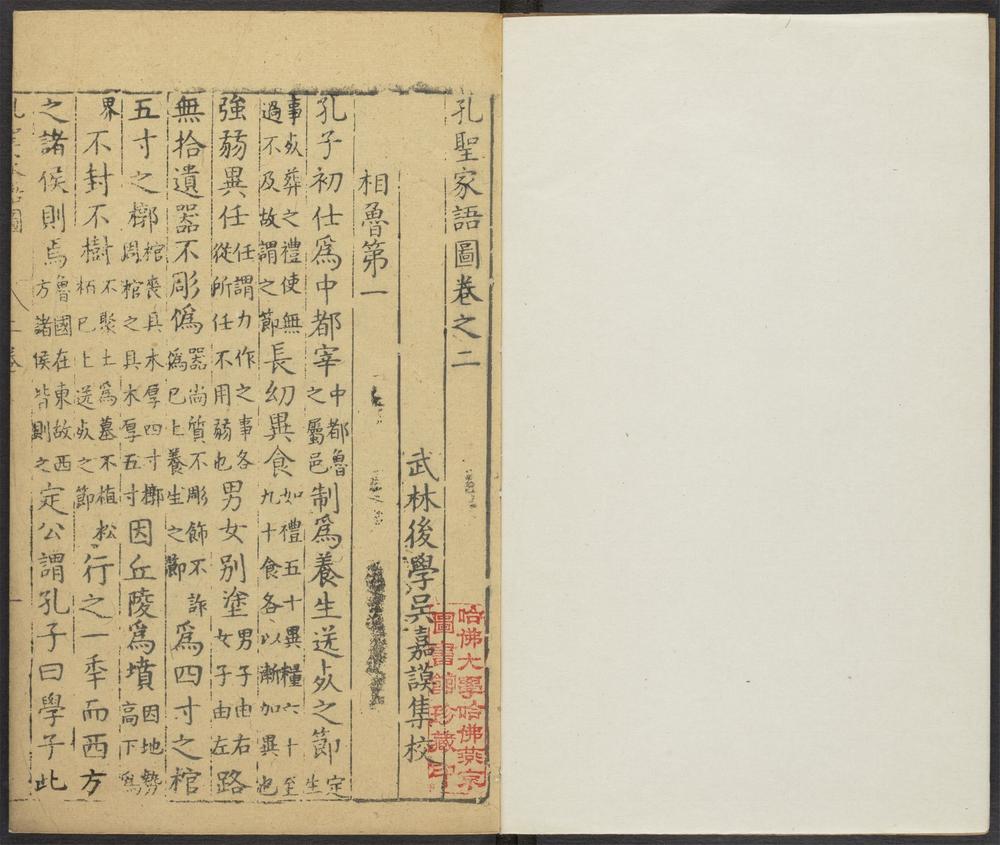 孔聖家語圖卷之二
武林後學吳嘉謨集校
相魯第一
孔子初仕爲中都宰中都魯之屬邑制爲養生送死之節定生
事死葬之禮使無過不及故謂之節長幼異食如禮五十異糧六十至九十食各以漸加異也
強弱異任任謂力作之事各從所任不用弱也男女別塗男子由右女子由左路
無拾遺器不彫僞器尚質不彫飾不詐僞已上養生之節爲四寸之棺
五寸之槨棺喪具木厚四寸槨周棺之具木厚五寸因丘陵爲墳因地勢高下爲
界不封不樹不聚土爲墓不植松柏已上送死之節行之一年而西方
之諸侯則焉魯國在東故西方諸侯皆則之定公謂孔子曰學子此
哈佛大學哈佛燕京
圖書館珍藏印